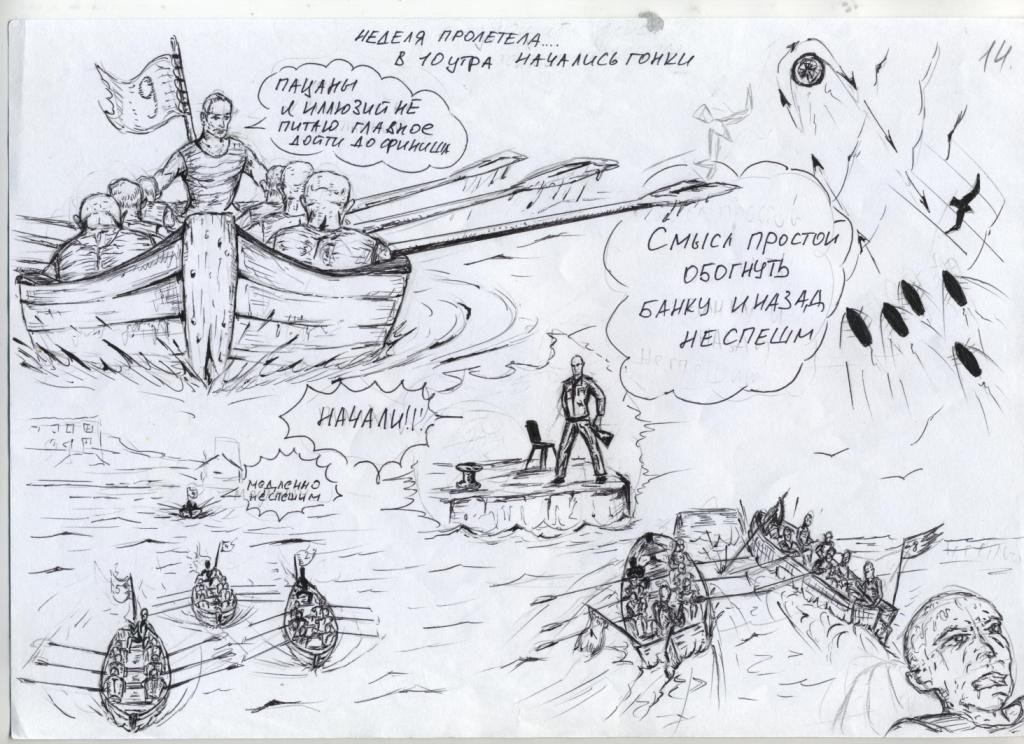 НЕДЕЛЯ ПРОЛЕТЕЛА....
В 10 УТРА НАЧАЛИСЬ ГОНКИ
14.
ПАЦАНЫ
Я ИЛЛЮЗИЙ НЕ
ПИТАЮ ГЛАВНОЕ
ДОЙТИ ДО ФИНИША
СМЫСЛ ПРОСТОЙ
ОБОГНУТЬ
БАНКУ И НАЗАД
НЕ СПЕШИМ
НАЧАЛИ!!!
МЕДЛЕННО
НЕ СПЕШИМ